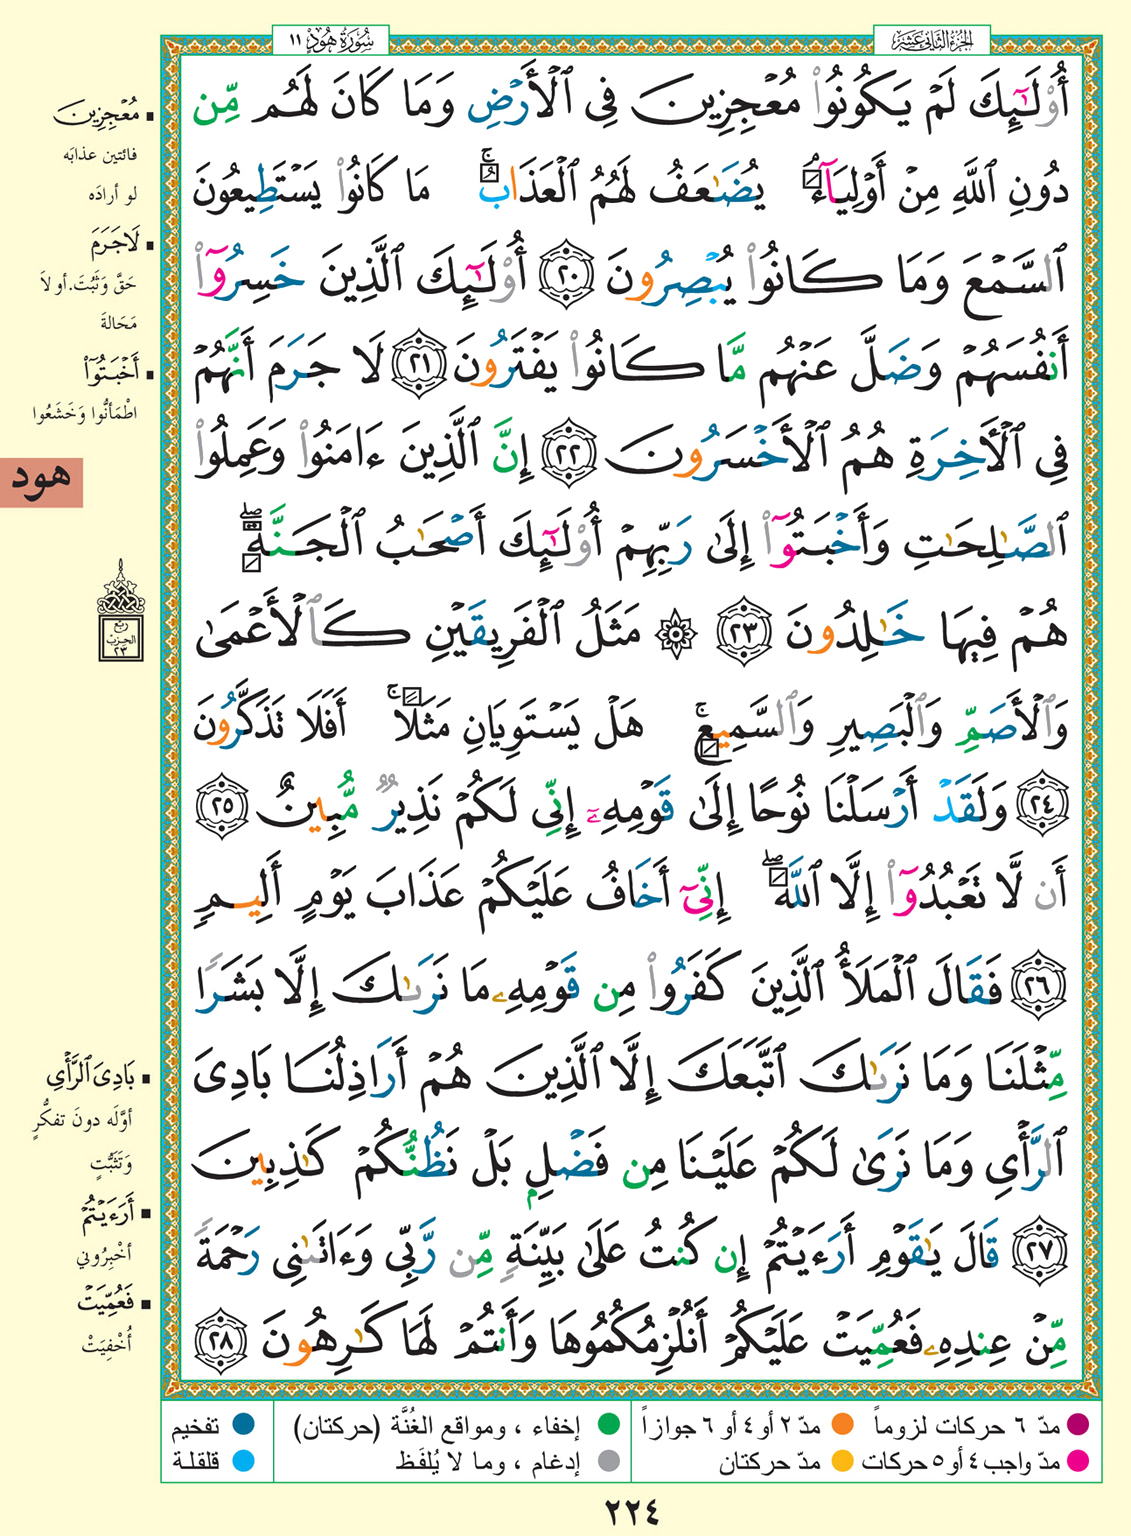 الجزء الثاني عشر
سُورَةُ هُودٍ ١١
أُوْلَٰٓئِكَ لَمْ يَكُونُواْ مُعْجِزِينَ فِى ٱلْأَرْضِ وَمَا كَانَ لَهُم مِّن
دُونِ ٱللَّهِ مِنْ أَوْلِيَآءَۘ يُضَٰعَفُ لَهُمُ ٱلْعَذَابُۚ مَا كَانُواْ يَسْتَطِيعُونَ
ٱلسَّمْعَ وَمَا كَانُواْ يُبْصِرُونَ ٢٠ أُوْلَٰٓئِكَ ٱلَّذِينَ خَسِرُوٓاْ
أَنفُسَهُمْ وَضَلَّ عَنْهُم مَّا كَانُواْ يَفْتَرُونَ ٢١ لَا جَرَمَ أَنَّهُمْ
فِى ٱلْأَخِرَةِ هُمُ ٱلْأَخْسَرُونَ ٢٢ إِنَّ ٱلَّذِينَ ءَامَنُواْ وَعَمِلُواْ
ٱلصَّٰلِحَٰتِ وَأَخْبَتُوٓاْ إِلَىٰ رَبِّهِمْ أُوْلَٰٓئِكَ أَصْحَٰبُ ٱلْجَنَّةِۖ
هُمْ فِيهَا خَٰلِدُونَ ٢٣ ۞ مَثَلُ ٱلْفَرِيقَيْنِ كَٱلْأَعْمَىٰ
وَٱلْأَصَمِّ وَٱلْبَصِيرِ وَٱلسَّمِيعِۚ هَلْ يَسْتَوِيَانِ مَثَلًاۚ أَفَلَا تَذَكَّرُونَ
٢٤ وَلَقَدْ أَرْسَلْنَا نُوحًا إِلَىٰ قَوْمِهِۦٓ إِنِّى لَكُمْ نَذِيرٌ مُّبِينٌ ٢٥
أَن لَّا تَعْبُدُوٓاْ إِلَّا ٱللَّهَۖ إِنِّىٓ أَخَافُ عَلَيْكُمْ عَذَابَ يَوْمٍ أَلِيمٍ
٢٦ فَقَالَ ٱلْمَلَأُ ٱلَّذِينَ كَفَرُواْ مِن قَوْمِهِۦ مَا نَرَىٰكَ إِلَّا بَشَرًا
مِّثْلَنَا وَمَا نَرَىٰكَ ٱتَّبَعَكَ إِلَّا ٱلَّذِينَ هُمْ أَرَاذِلُنَا بَادِىَ
ٱلرَّأْىِ وَمَا نَرَىٰ لَكُمْ عَلَيْنَا مِن فَضْلٍۭ بَلْ نَظُنُّكُمْ كَٰذِبِينَ
٢٧ قَالَ يَٰقَوْمِ أَرَءَيْتُمْ إِن كُنتُ عَلَىٰ بَيِّنَةٍ مِّن رَّبِّى وَءَاتَىٰنِى رَحْمَةً
مِّنْ عِندِهِۦ فَعُمِّيَتْ عَلَيْكُمْ أَنُلْزِمُكُمُوهَا وَأَنتُمْ لَهَا كَٰرِهُونَ ٢٨
▪ مُعْجِزِينَ
فائتين عذابَه
لو أرادَه
▪ لَاجَرَمَ
حَقَّ وَثَبُتَ. أو لاَ
مَحَالةَ
▪ أَخْبَتُوٓاْ
اطْمَأنُّوا وَخَشَعُوا
هود
ربع
الحزب
٢٣
▪ بَادِىَ ٱلرَّأْىِ
أوَّلَه دونَ تفكُّرٍ
وَتَثَبُّتٍ
▪ أَرَءَيْتُمْ
أخْبِرُوني
▪ فَعُمِّيَتْ
أُخْفِيَتْ
مدّ ٦ حركات لزوماً
مدّ ٢ أو ٤ أو ٦ جوازاً
إخفاء ، ومواقع الغُنَّة (حركتان)
تفخيم
مدّ واجب ٤ أو ٥ حركات
مدّ حركتان
إدغام ، وما لا يُلفَظ
قلقلة
٢٢٤